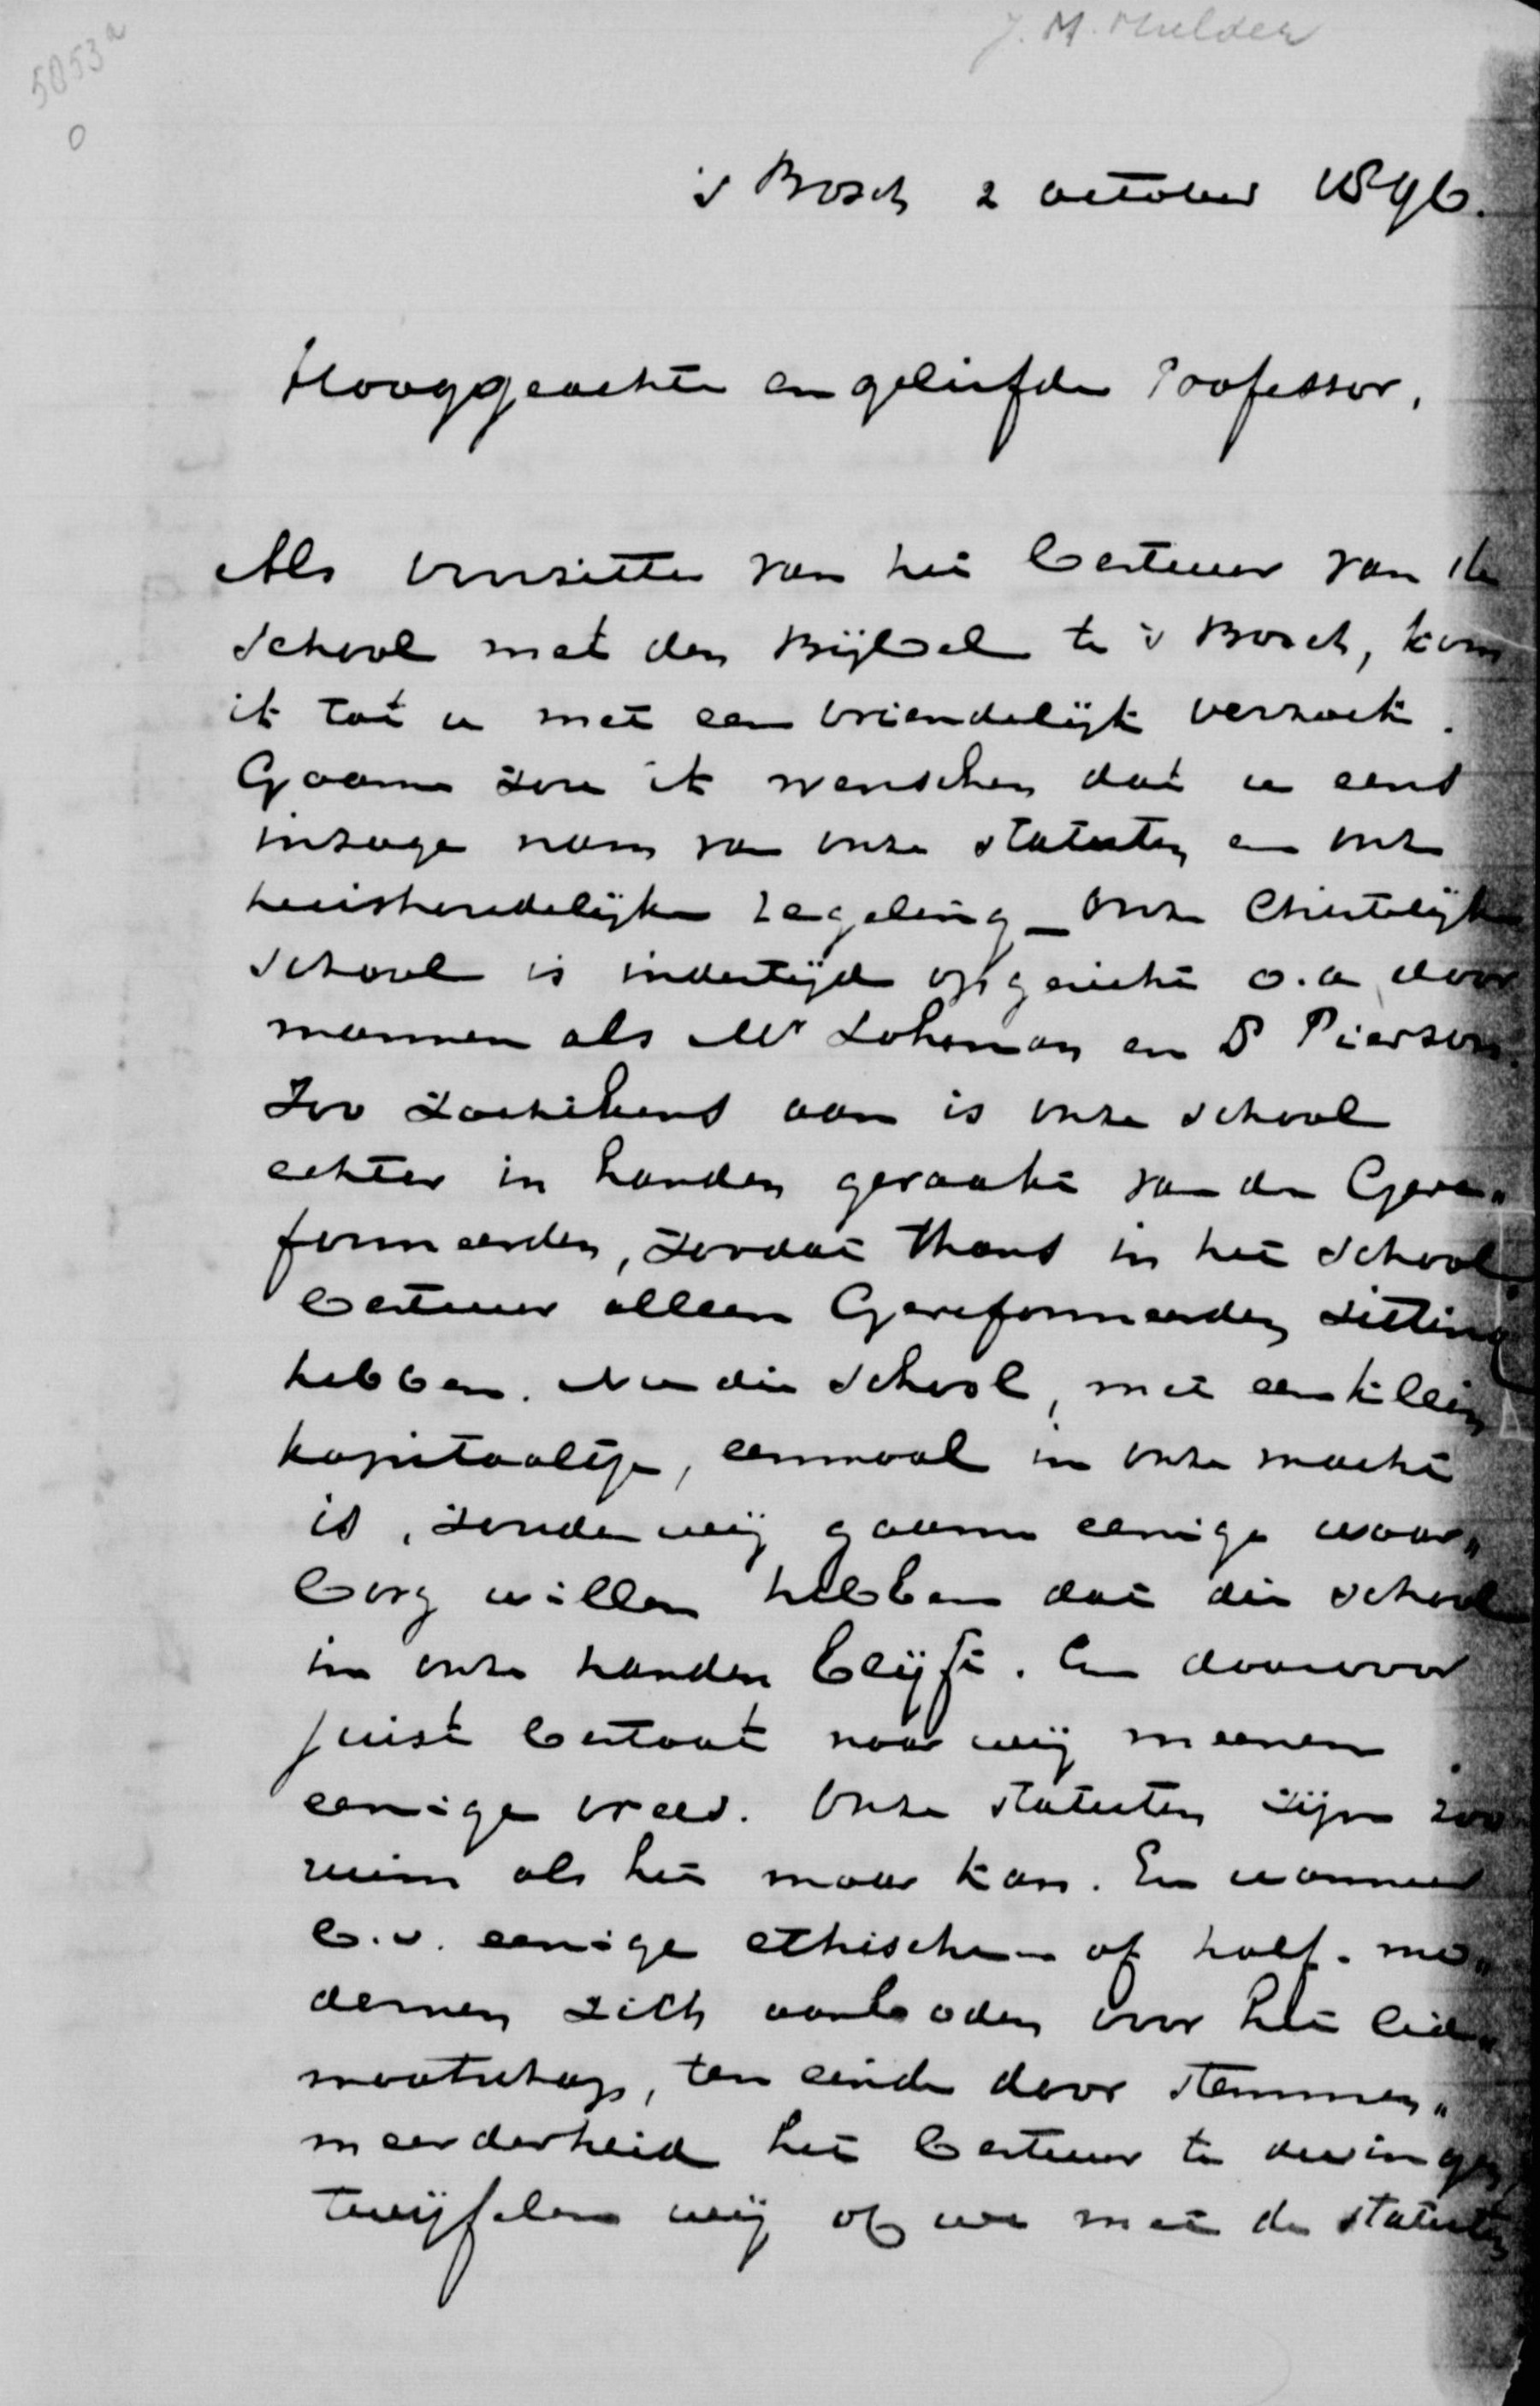 J. M. Mulder
5053a
0
's Bosch 2 october 1896.
Hooggeachte en geliefde Professor,
Als voorzitter van het bestuur van de
school met den Bijbel te 's Bosch, kom
ik tot u met een vriendelijk verzoek.
Gaarne zou ik wenschen dat u eens
inzage nam van onze statuten en onze
huishoudelijke regeling_ Onze Christelijke
school is indertijd opgericht o.a. door
mannen als Mr Lohman en Ds Pierson.
Zoo zoetjikens aan is onze school
echter in handen geraakt van de Gere„
formeerden, zoodat thans in het school„
bestuur alleen Gereformeerden zitting
hebben. Nu die school, met een klein
kapitaaltje, eenmaal in onze macht
is, zouden wij gaarne eenige waar„
borg willen hebben dat die school
in onze handen blijft. En daarvoor
juist bestaat naar wij meenen
eenige vrees. Onze statuten zijn zoo
ruim als het maar kan. En wanneer
b.v. eenige ethischen of half-mo„
dernen zich aanboden voor het lid„
maatschap, ten einde door stemmen„
meerderheid het bestuur te dwingen,
twijfelen wij of we met de statuten